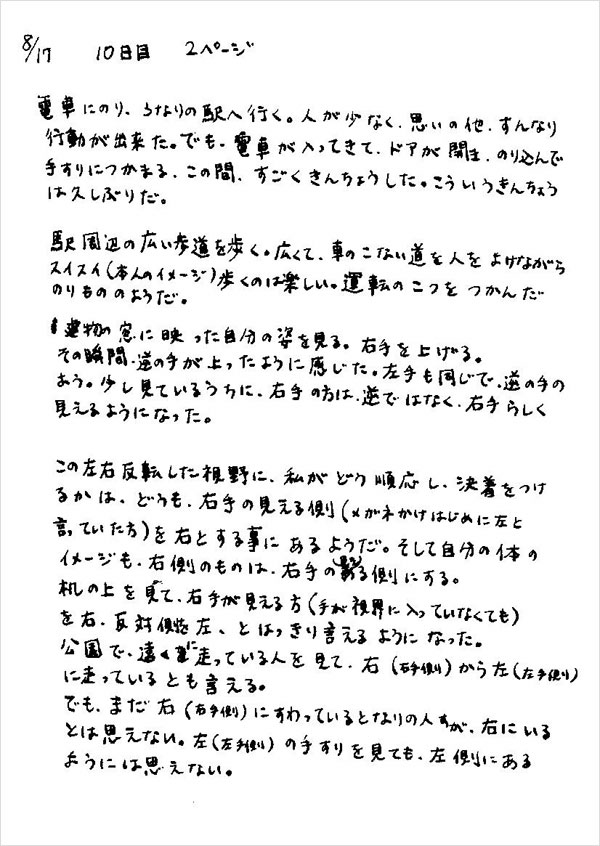 8/17 10日目 2ページ
電車にのり、となりの駅へ行く。人が少なく、思いの他、すんなり
行動が出来た。でも、電車が入ってきて、ドアが開き、のり込んで
手すりにつかまる、この間、すごくきんちょうした。こういうきんちょう
は久しぶりだ。
駅周辺の広い歩道を歩く。広くて、車のこない道を人をよけながら
スイスイ(本人のイメージ)歩くのは楽しい。運転のこつをつかんだ
のりもののようだ。
建物の窓に映った自分の姿を見る。右手を上げる。
その瞬間、逆の手が上ったように感じた。左手も同じで、逆の手の
よう。少し見ているうちに、右手の方は、逆ではなく、右手らしく
見えるようになった。
この左右反転した視野に、私がどう順応し、決着をつけ
るかは、どうも、右手の見える側(メガネかけはじめに左と
言っていた方)を右とする事にあるようだ。そして自分の体の
イメージも、右側のものは、右手の ある側にする。
机の上を見て、右手が見える方(手が視界に入っていなくても)
を右、反対側を左、とはっきり言えるようになった。
公園で、遠くに走っている人を見て、右(右手側)から左(左手側)
に走っているとも言える。
でも、まだ右(右手側)にすわっているとなりの人が、右にいる
とは思えない。左(左手側)の手すりを見ても、左側にある
ようには思えない。